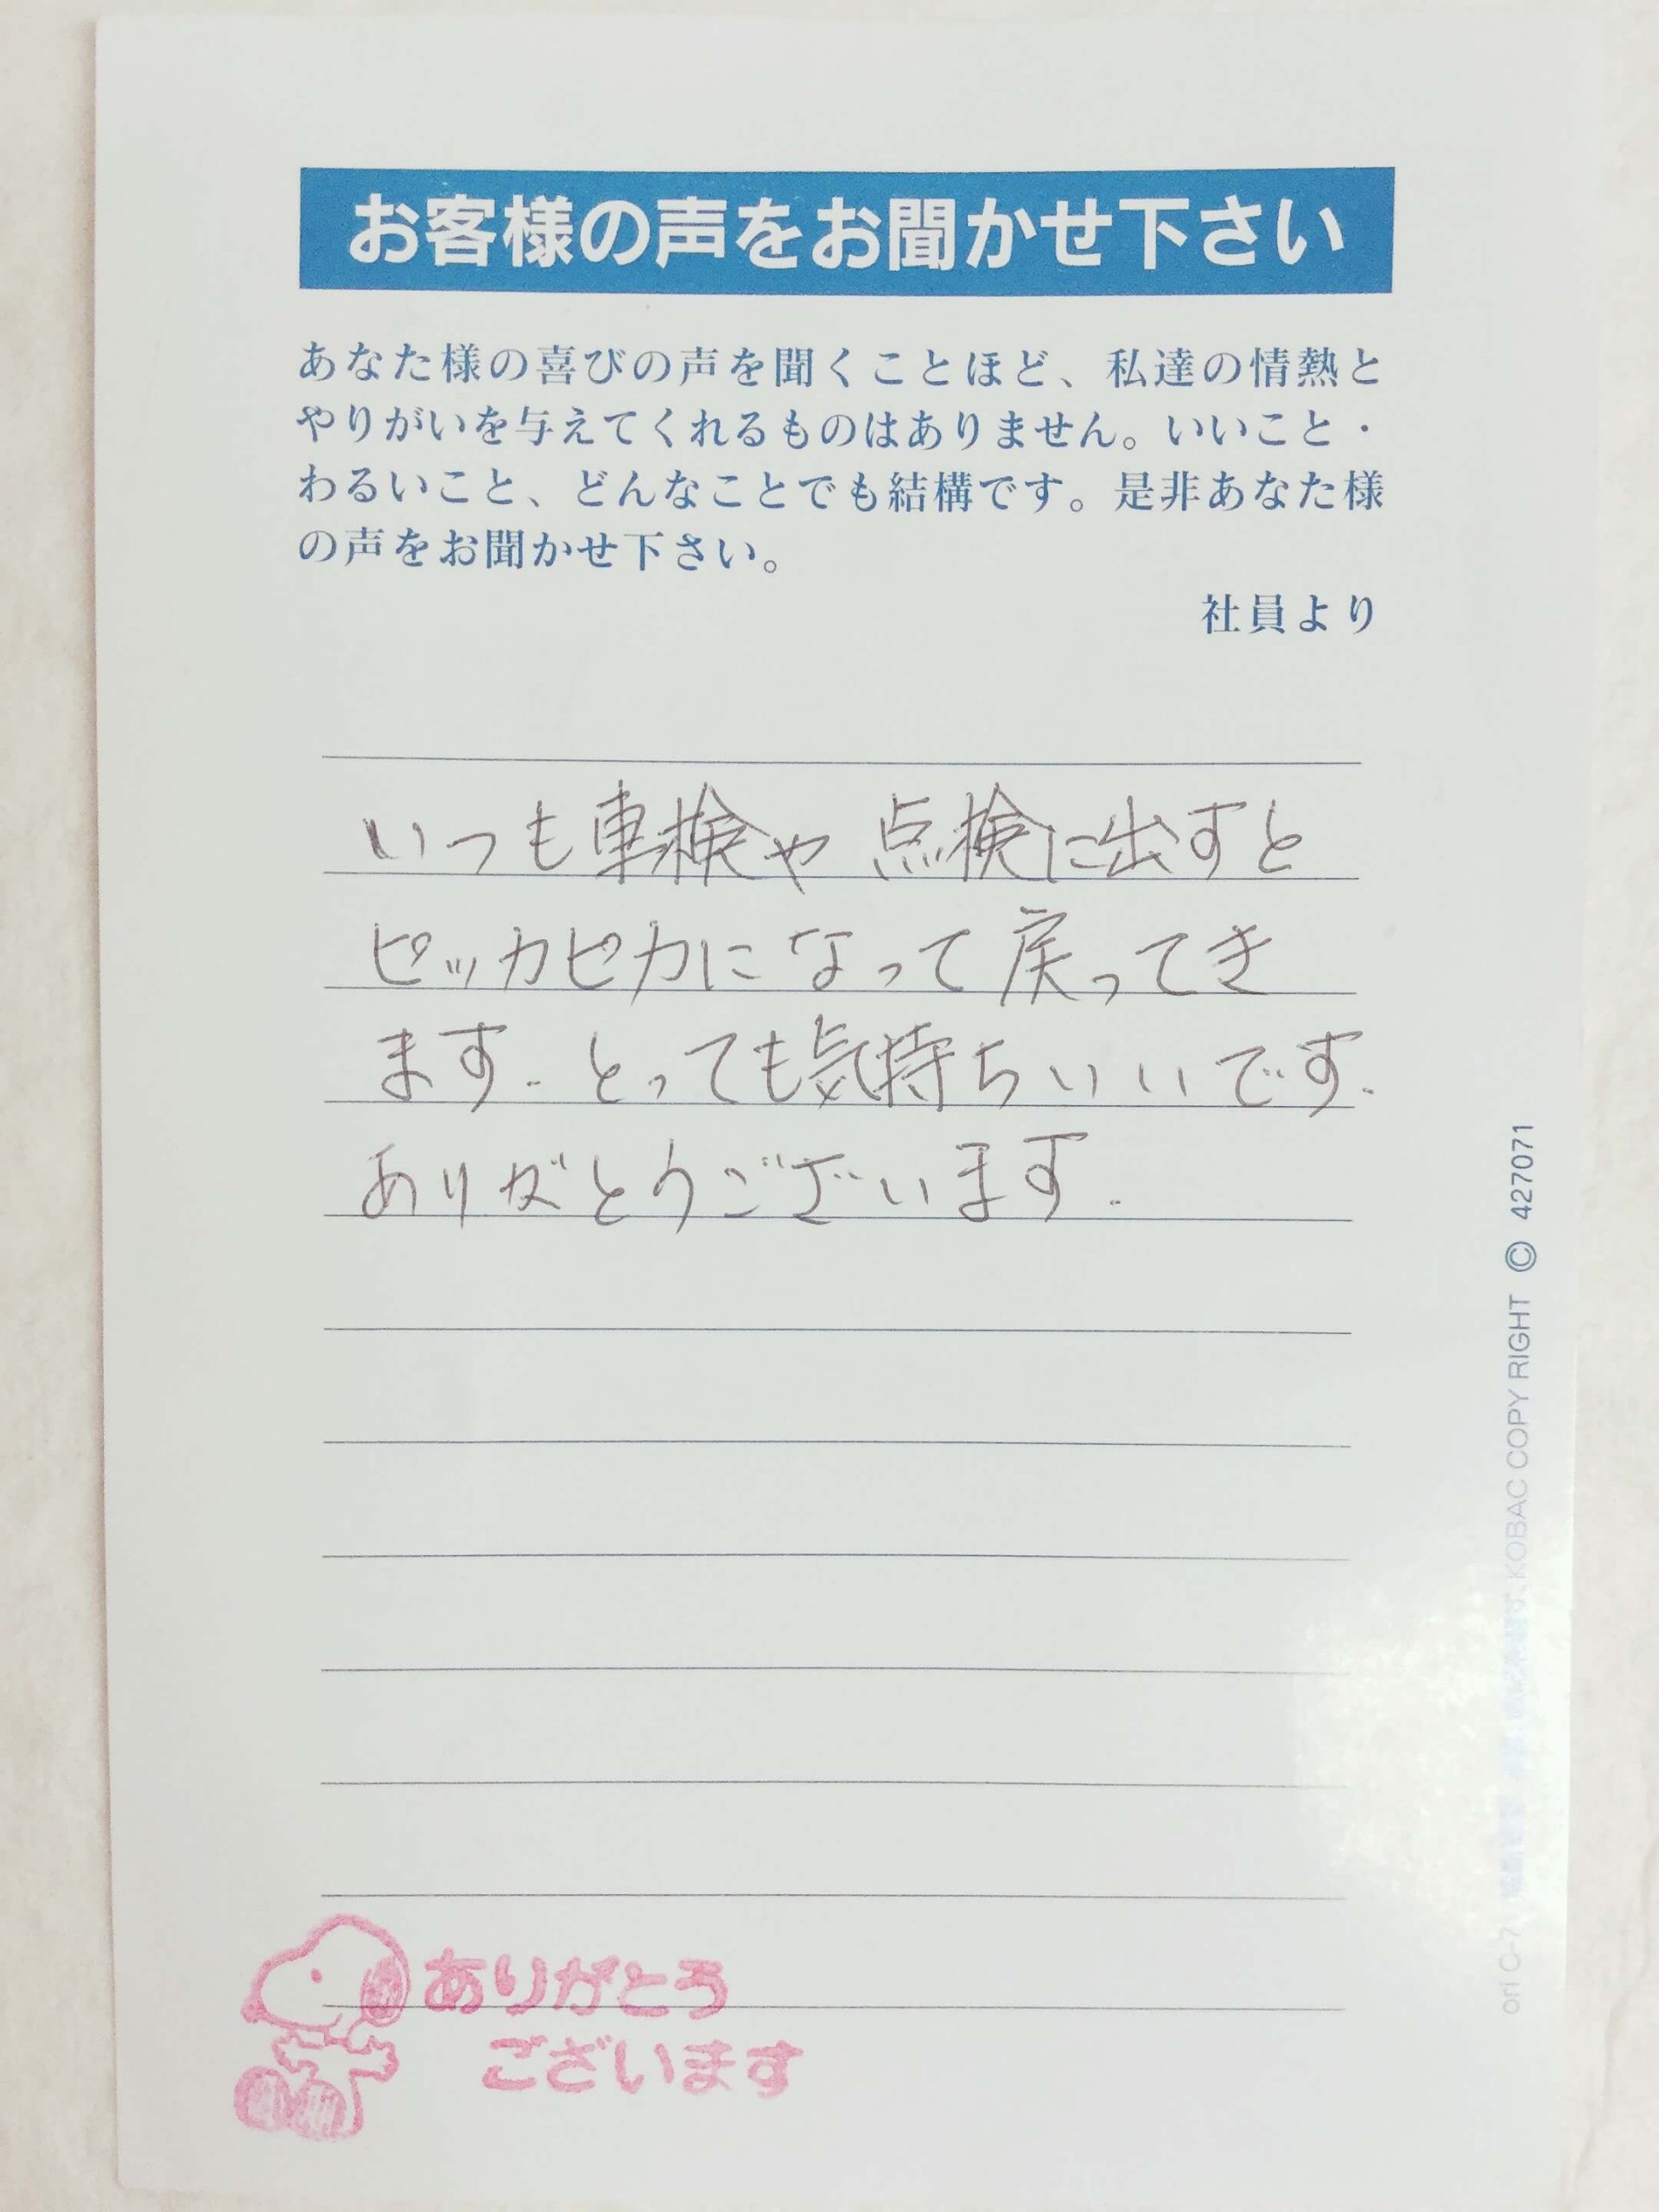 お客様の声をお聞かせ下さい
あなた様の喜びの声を聞くことほど、私達の情熱と
やりがいを与えてくれるものはありません。いいこと・
わるいこと、どんなことでも結構です。是非あなた様
の声をお聞かせ下さい。
社員より
いつも車検や点検に出すと
ピッカピカになって戻ってき
ます。とっても気持ちいいです。
ありがとうございます。
ありがとう
ございます
ori C-7
KOBAC COPY RIGHT © 427071